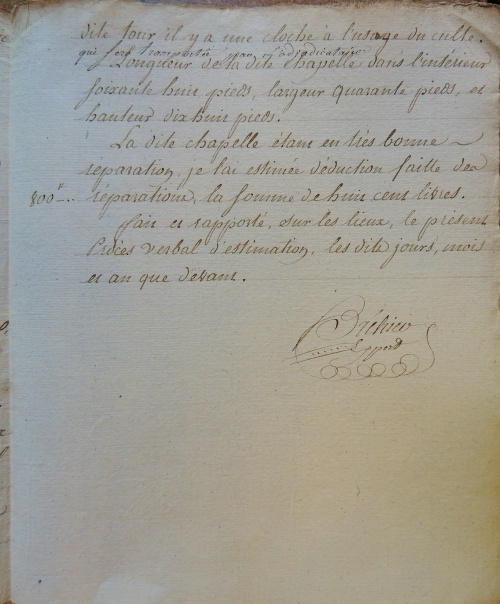 dite tour il y a une cloche à l'usage du culte.
qui sera transportée par l'adjudicataire
Longueur de la dite chapelle dans l'intérieur
soixante huit pieds, largeur quarante pieds, et
hauteur dix huit pieds.
La dite chapelle étant en très bonne
réparation, je l'ai estimée déduction faitte des
800ᴸ... réparations, la somme de huit cent livres.
fait et rapporté, sur les lieux, le présent
Procès verbal d'estimation, les dits jours, mois
et an que devant.
Bréhier
Expert